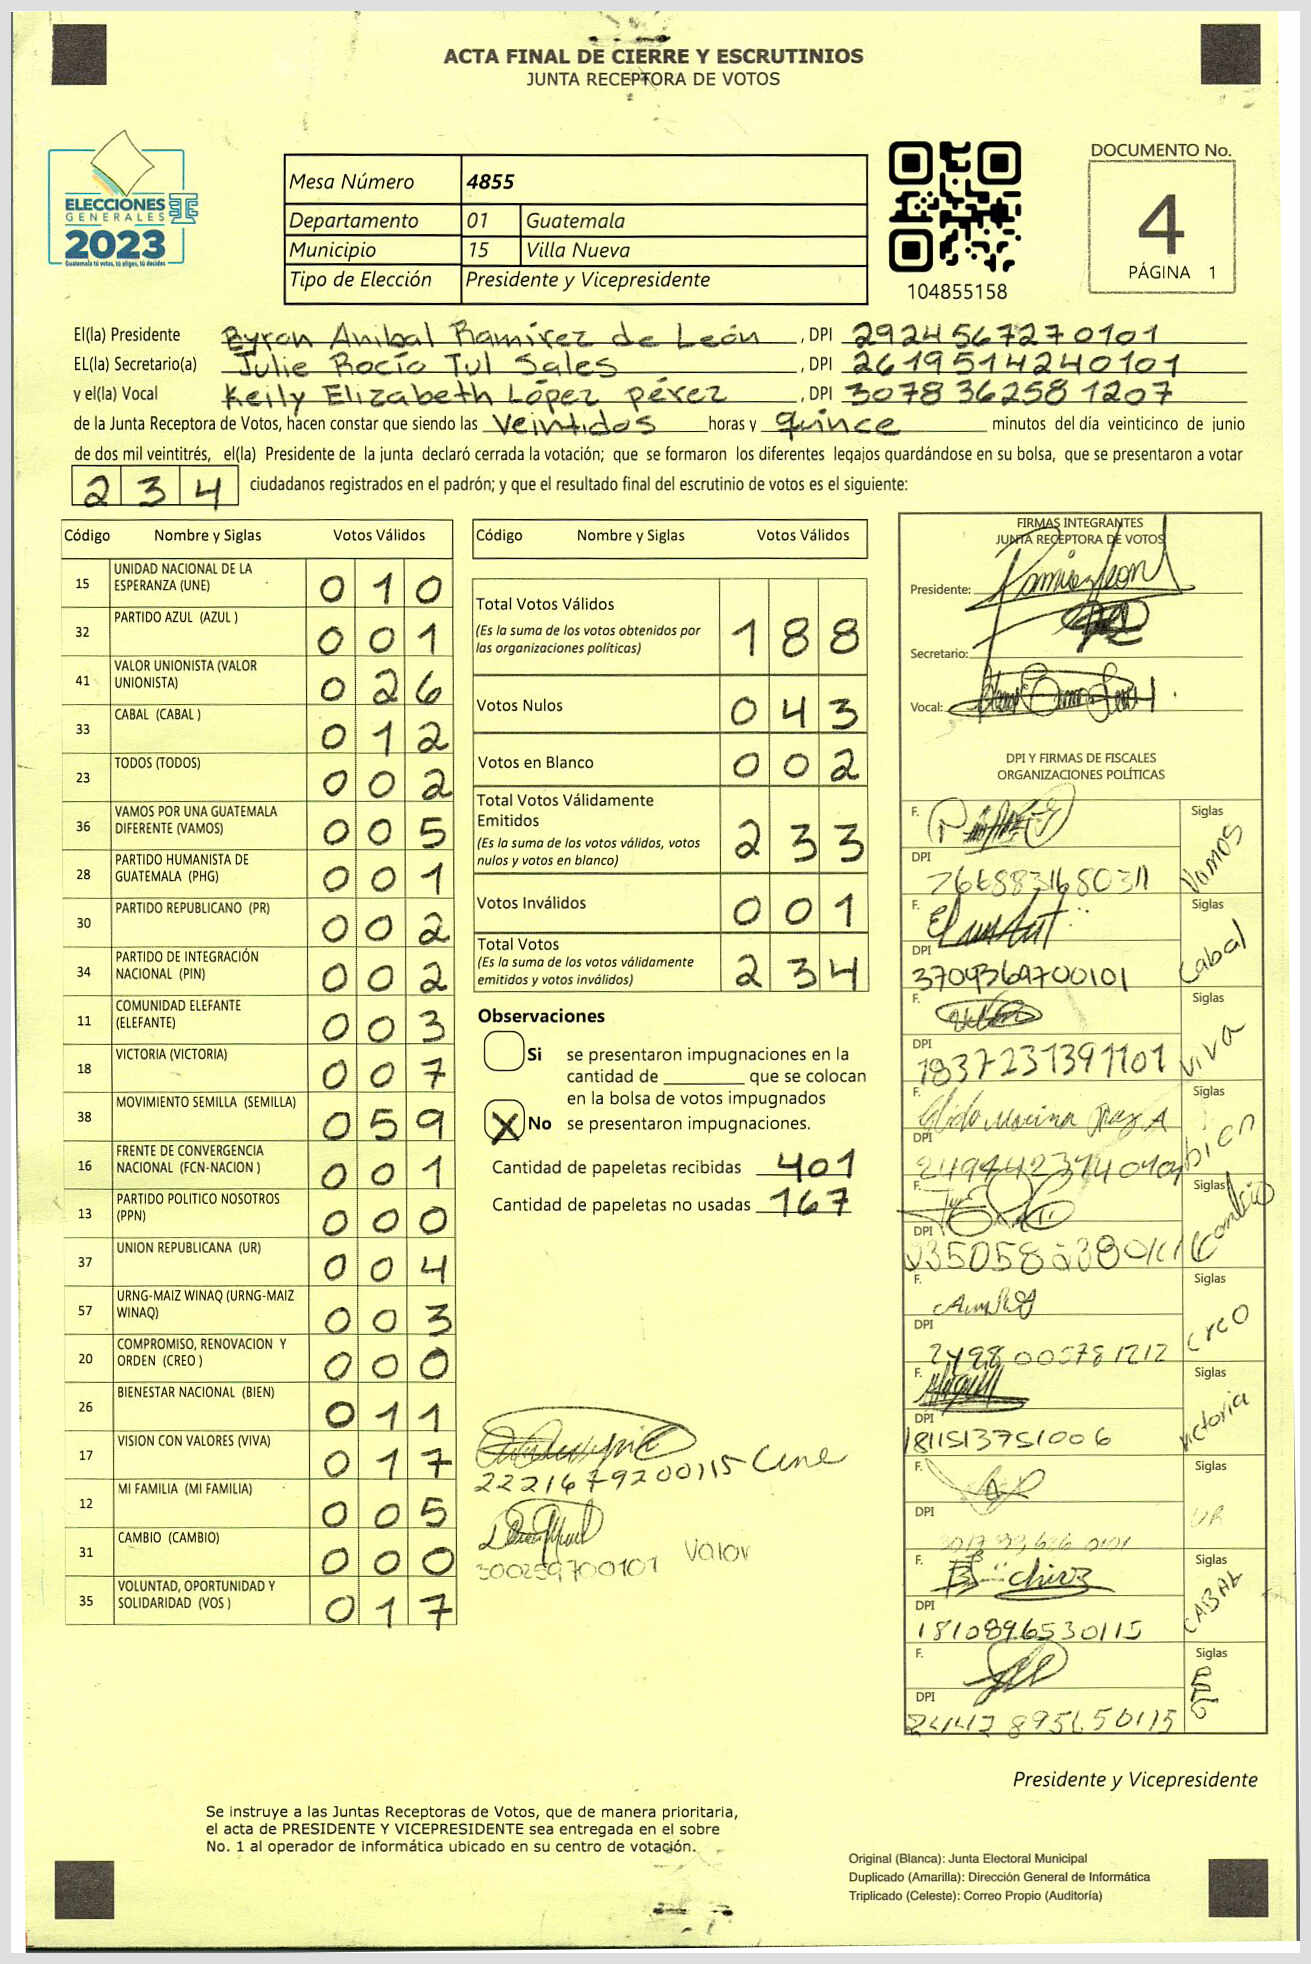 ACTA FINAL DE CIERRE Y ESCRUTINIOS
JUNTA RECEPTORA DE VOTOS
ELECCIONES
GENERALES
2023
Guatemala tú votas, tú eliges, tú decides
Mesa Número 4855
Departamento 01 Guatemala
Municipio 15 Villa Nueva
Tipo de Elección Presidente y Vicepresidente
104855158
DOCUMENTO No.
4
PÁGINA 1
El(la) Presidente Byron Anibal Ramírez de León , DPI 2924567270101
EL(la) Secretario(a) Julie Rocío Tul Sales , DPI 2619514240101
y el(la) Vocal Keily Elizabeth López pérez , DPI 3078362581207
de la Junta Receptora de Votos, hacen constar que siendo las Veintidos horas y quince minutos del día veinticinco de junio
de dos mil veintitrés, el(la) Presidente de la junta declaró cerrada la votación; que se formaron los diferentes legajos guardándose en su bolsa, que se presentaron a votar
234 ciudadanos registrados en el padrón; y que el resultado final del escrutinio de votos es el siguiente:
Código Nombre y Siglas Votos Válidos
15 UNIDAD NACIONAL DE LA ESPERANZA (UNE) 010
32 PARTIDO AZUL (AZUL ) 001
41 VALOR UNIONISTA (VALOR UNIONISTA) 026
33 CABAL (CABAL ) 012
23 TODOS (TODOS) 002
36 VAMOS POR UNA GUATEMALA DIFERENTE (VAMOS) 005
28 PARTIDO HUMANISTA DE GUATEMALA (PHG) 001
30 PARTIDO REPUBLICANO (PR) 002
34 PARTIDO DE INTEGRACIÓN NACIONAL (PIN) 002
11 COMUNIDAD ELEFANTE (ELEFANTE) 003
18 VICTORIA (VICTORIA) 007
38 MOVIMIENTO SEMILLA (SEMILLA) 059
16 FRENTE DE CONVERGENCIA NACIONAL (FCN-NACION ) 001
13 PARTIDO POLITICO NOSOTROS (PPN) 000
37 UNION REPUBLICANA (UR) 004
57 URNG-MAIZ WINAQ (URNG-MAIZ WINAQ) 003
20 COMPROMISO, RENOVACION Y ORDEN (CREO ) 000
26 BIENESTAR NACIONAL (BIEN) 011
17 VISION CON VALORES (VIVA) 017
12 MI FAMILIA (MI FAMILIA) 005
31 CAMBIO (CAMBIO) 000
35 VOLUNTAD, OPORTUNIDAD Y SOLIDARIDAD (VOS ) 017
Código Nombre y Siglas Votos Válidos
Total Votos Válidos 188
(Es la suma de los votos obtenidos por
las organizaciones políticas)
Votos Nulos 043
Votos en Blanco 002
Total Votos Válidamente
Emitidos 233
(Es la suma de los votos válidos, votos
nulos y votos en blanco)
Votos Inválidos 001
Total Votos 234
(Es la suma de los votos válidamente
emitidos y votos inválidos)
Observaciones
Si se presentaron impugnaciones en la
cantidad de ________ que se colocan
en la bolsa de votos impugnados
X No se presentaron impugnaciones.
Cantidad de papeletas recibidas 401
Cantidad de papeletas no usadas 167
2221679200115
300259700101 Valor
FIRMAS INTEGRANTES
JUNTA RECEPTORA DE VOTOS
Presidente:
Secretario:
Vocal:
DPI Y FIRMAS DE FISCALES
ORGANIZACIONES POLÍTICAS
F. Siglas
DPI Vamos
F. Siglas
DPI 3709369700101 Cabal
F. Siglas
DPI 1837231391101 Viva
F. Siglas
DPI bien
F. Siglas
DPI
F. Siglas
DPI 2498005781212 creo
F. Siglas
DPI 1811513751006 Victoria
F. Siglas
DPI UR
F. Siglas
DPI 1810896530115 CABAL
F. Siglas
DPI
Presidente y Vicepresidente
Se instruye a las Juntas Receptoras de Votos, que de manera prioritaria,
el acta de PRESIDENTE Y VICEPRESIDENTE sea entregada en el sobre
No. 1 al operador de informática ubicado en su centro de votación.
Original (Blanca): Junta Electoral Municipal
Duplicado (Amarilla): Dirección General de Informática
Triplicado (Celeste): Correo Propio (Auditoría)